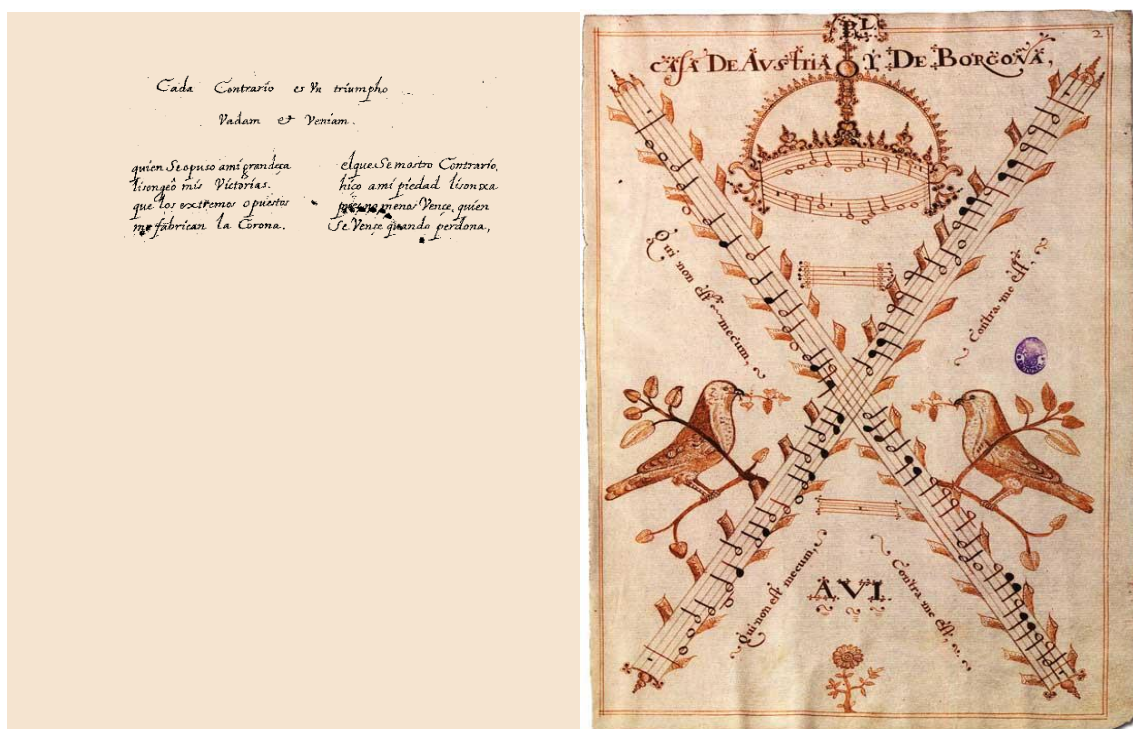 Cada Contrario es Vn triumpho
Vadam & Veniam.
quien Se opuso ami grandeça
lisongeô mis Victorias.
que los extremos opuestos
me fabrican la Corona.
el que Se mostro Contrario,
hiço ami piedad lisonxa
pues no menos Vençe, quien
Se Vençe quando perdona,
2
EL
CASA DE AVSTRIA Y DE BORGOÑA,
Qui non est mecum,
Contra me est,
Qui non est mecum,
Contra me est,
A.V.I.